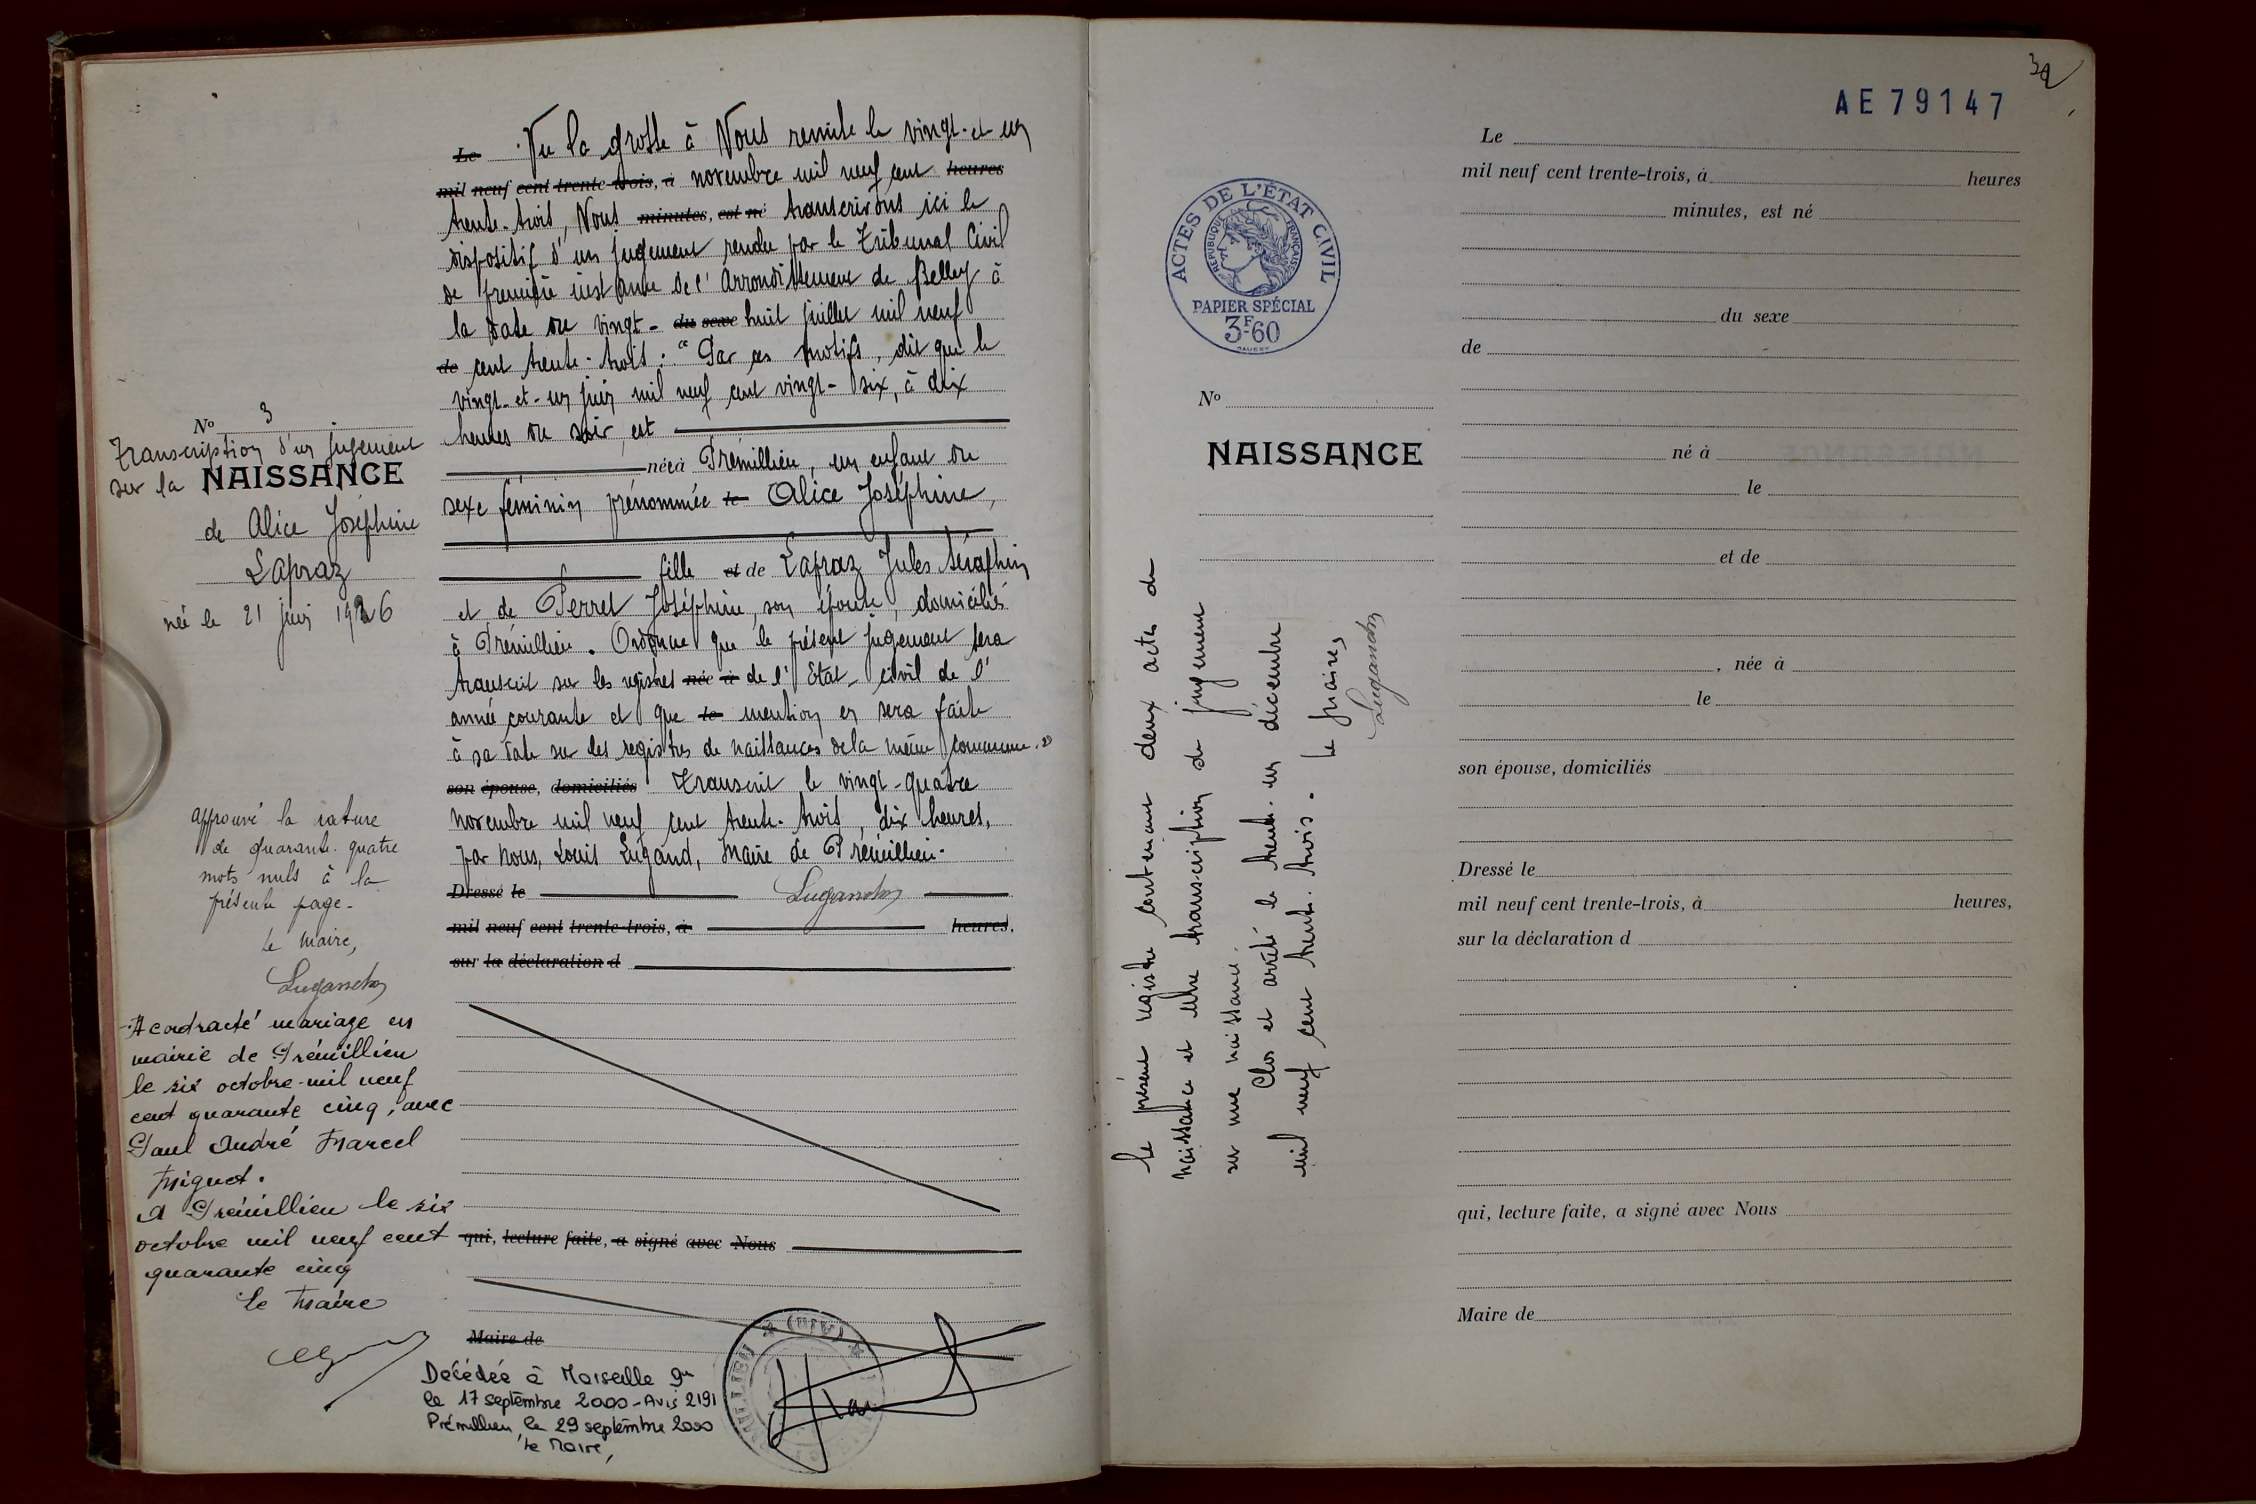 N° 3
Transcription d'un jugement
sur la NAISSANCE
de Alice Joséphine
Lapraz
née le 21 juin 1926
approuvé la rature
de quarante-quatre
mots nuls à la
présente page.
Le Maire,
A contracté mariage en
mairie de Prémillieu
le six octobre mil neuf
cent quarante cinq, avec
Paul André Marcel
Miguet.
A Prémillieu le six
octobre mil neuf cent
quarante cinq
Le Maire
Le Vu la grosse à Nous remise le vingt-et-un
mil neuf cent trente-trois, à novembre mil neuf cent heures
trente-trois, Nous minutes, est né transcrivons ici le
dispositif d'un jugement rendu par le Tribunal Civil
de première instance de l'Arrondissement de Belley à
la date du vingt- du sexe huit juillet mil neuf
de cent trente-trois : " Par ces motifs, dit que le
vingt-et-un juin mil neuf cent vingt-six, à dix
heures du soir, est
née à Prémillieu, un enfant du
sexe féminin prénommée le Alice Joséphine,
fille et de Lapraz Jules Séraphin
et de Perret Joséphine, son épouse, domiciliés
à Prémillieu. Ordonne que le présent jugement sera
transcrit sur les registres née à de l'Etat-civil de l'
année courante et que le mention en sera faite
à sa date sur les registres de naissances de la même commune."
son épouse, domiciliés Transcrit le vingt-quatre
novembre mil neuf cent trente-trois, dix heures,
par nous, Louis Lugand, Maire de Prémillieu.
Dressé le
mil neuf cent trente-trois, à heures.
sur la déclaration d
qui, lecture faite, a signé avec Nous
Maire de
Décédée à Marseille 9e
le 17 septembre 2000 - Avis 2191
Prémillieu, le 29 septembre 2000
Le Maire,
(AIN)
AE 79147
ACTES DE L'ÉTAT CIVIL
RÉPUBLIQUE FRANÇAISE
PAPIER SPÉCIAL
3F60
N°
NAISSANCE
Le présent registre contenant deux actes de
naissance et une transcription de jugement
sur une naissance.
Clos et arrêté le trente-un décembre
mil neuf cent trente-trois. Le Maire,
Le
mil neuf cent trente-trois, à heures
minutes, est né
du sexe
de
né à
le
et de
, née à
le
son épouse, domiciliés
Dressé le
mil neuf cent trente-trois, à heures,
sur la déclaration d
qui, lecture faite, a signé avec Nous
Maire de